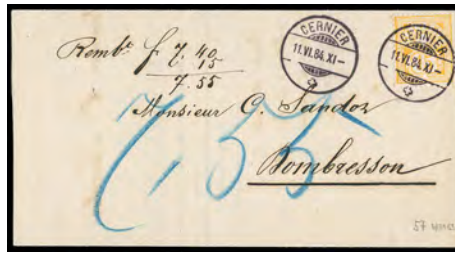 CERNIER
11.VI.84.XI-
CERNIER
11.VI.84.XI-
Rembt f. 7. 40
15
7. 55
Monsieur C. Sandoz
Dombresson
7,55
57